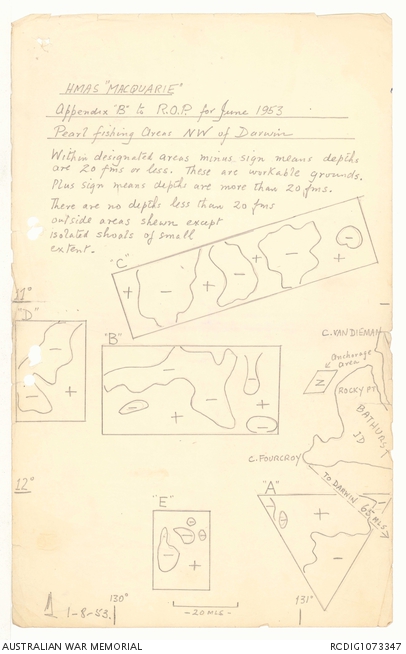 HMAS "MACQUARIE"
Appendix "B" to R.O.P. for June 1953
Pearl fishing Areas NW of Darwin
Within designated areas minus sign means depths
are 20 fms or less. These are workable grounds.
Plus sign means depths are more than 20 fms.
There are no depths less than 20 fms
outside areas shewn except
isolated shoals of small
extent.
"C"
11°
"D"
"B"
C. VAN DIEMAN
anchorage
area
Z
ROCKY PT.
BATHURST
ID
C. FOURCROY
TO DARWIN 65 MLS
12°
"A"
"E"
130°
131°
1-8-53.
20 MLS
AUSTRALIAN WAR MEMORIAL
RCDIG1073347